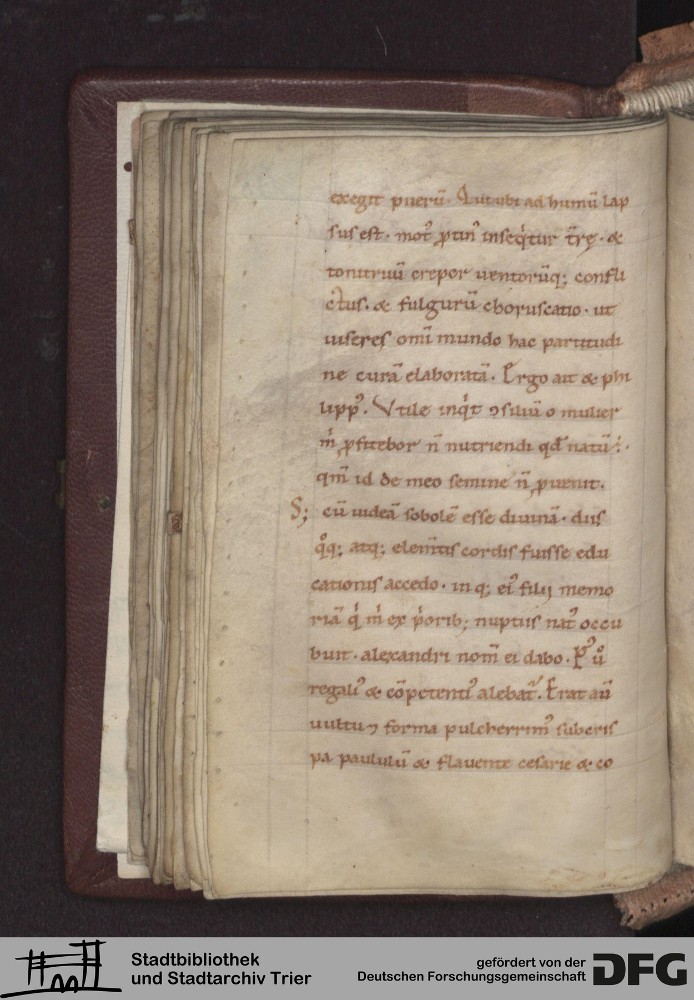 exegit puerū. Aut ubi ad humū lap
sus est. mot᷒ ꝓtin᷒ inseqͥtur tr̄ę. &
tonitruū crepor uentorūq; confli
ctus. & fulgurū choruscatio. ut
uiseres omī mundo hac partitudi
ne curā elaboratā. Ergo ait & phi
lipp᷒. Vtile inqͥt ꝯsiliū o mulier
m̄ ꝓfitebor n̄ nutriendi qd̄ natū ÷.
qm̄ id de meo semine n̄ ꝓuenit.
S; cū uideā sobolē esse diuinā. diis
qͦq; atq; elem̄tis cordis fuisse edu
cationis accedo. in q; ei᷒ filii memo
riā qͥ m̄ ex pͥorib; nuptiis nat᷒ occu
buit. alexandri nom̄ ei dabo. P᷒ uͦ
regalit᷒ & cōpetent᷒ alebat᷒. Erat aū
uultu ⁊ forma pulcherrim᷒ subcris
pa paululū & flauente cesarie & co
Stadtbibliothek
und Stadtarchiv Trier
gefördert von der
Deutschen Forschungsgemeinschaft
DFG